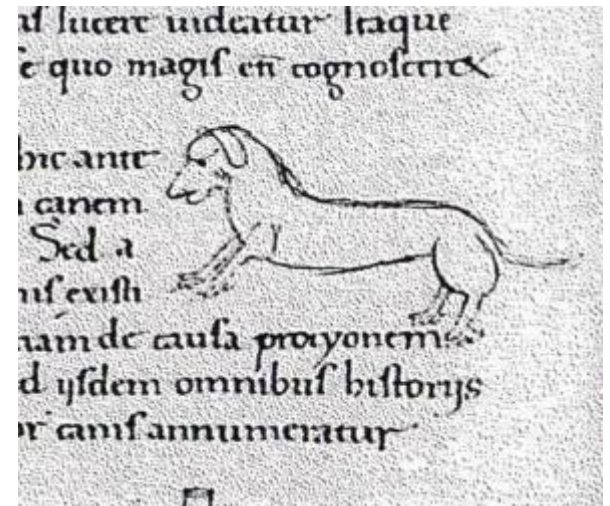 aſ lucere uideatur Itaque
e quo magiſ en̄ cognoſceret
hic ante
canem
Sed a
niſ exiſti
nam de cauſa procyonem
d ijſdem omnibuſ hiſtorijs
r caniſ annumeratur